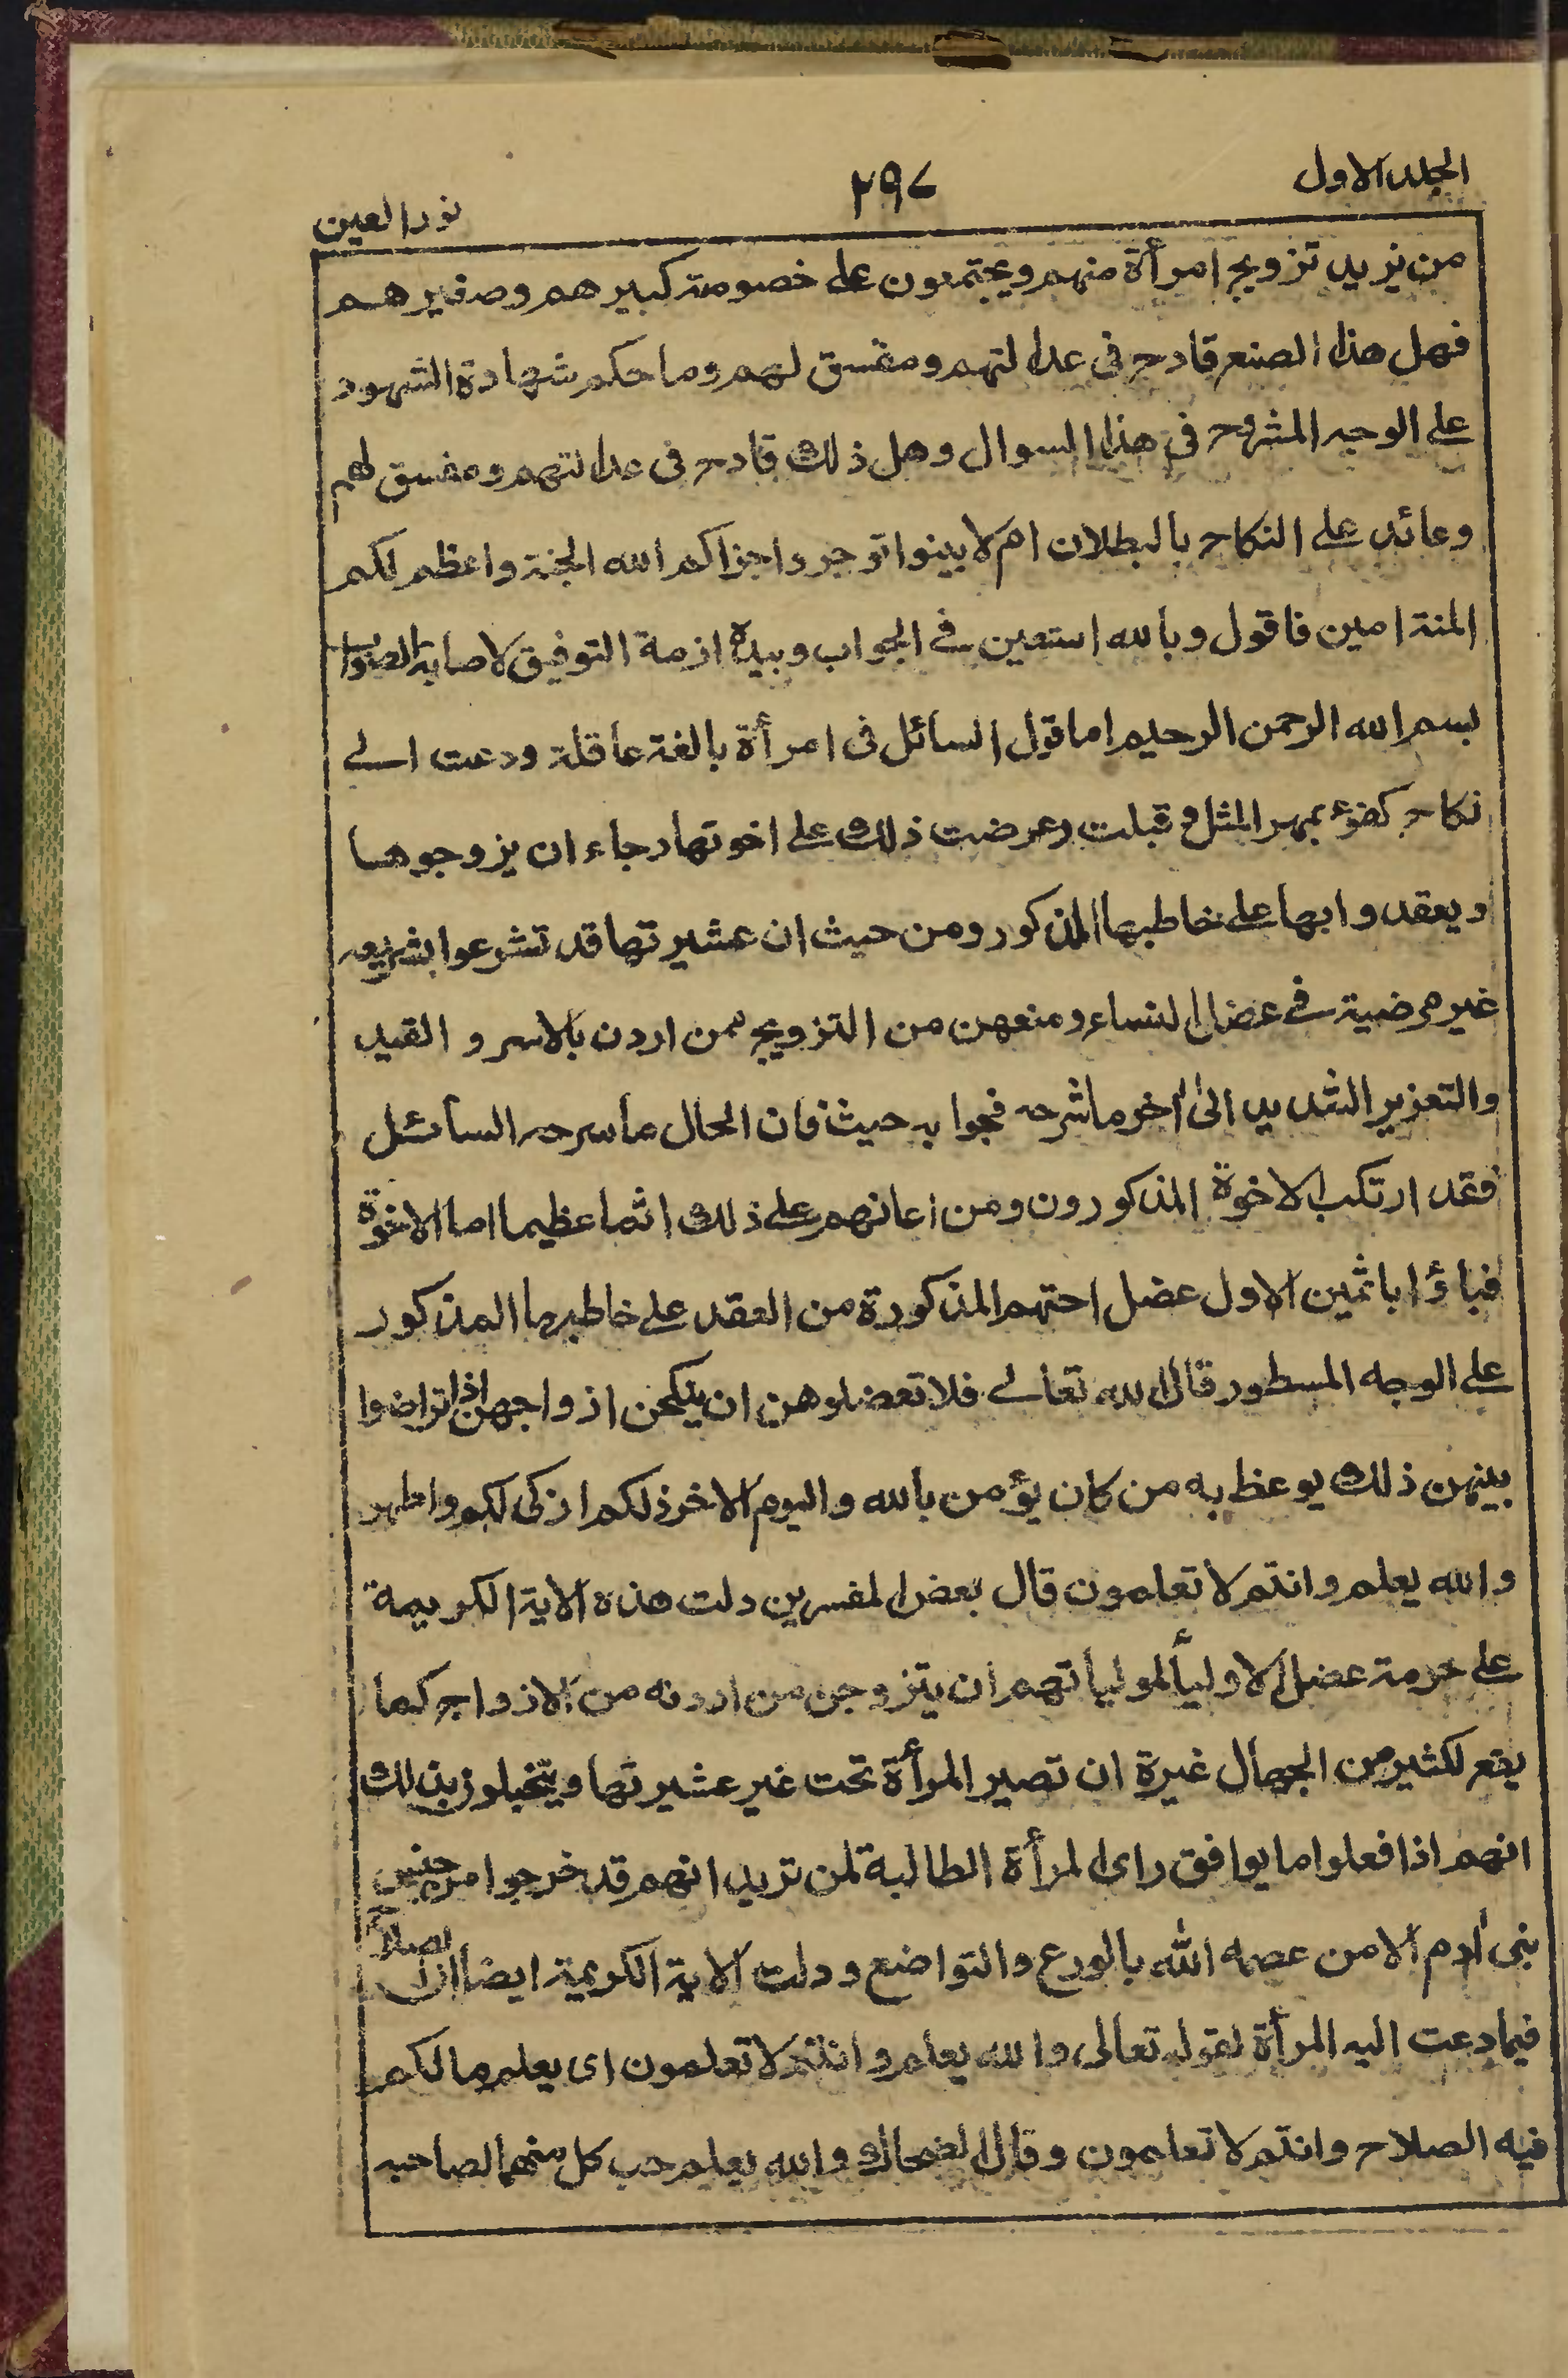 المجلد الاول
٢٩٧
نور العين
من يريد تزويج امرأة منهم ويجتمعون على خصومته كبيرهم وصغيرهم
فهل هذا الصنع قادح فى عدالتهم ومفسق لهم وما حكم شهادة الشهود
على الوجه المشروح فى هذا السوال وهل ذلك قادح فى عدالتهم ومفسق لهم
وعائد على النكاح بالبطلان ام لا بينوا توجروا جزاكم الله الجنة واعظم لكم
المنة امين فاقول وبالله استعين فے الجواب وبيده ازمة التوفيق لاصابة الصواب
بسم الله الرحمن الرحيم اما قول السائل فى امرأة بالغة عاقلة ودعت الے
نكاح كفوء بمهر المثل وقبلت وعرضت ذلك على اخوتها رجاء ان يزوجوها
ويعقدوا بها على خاطبها المذكور ومن حيث ان عشيرتها قد تشرعوا بشريعه
غير مرضية فے عضل النساء ومنعهن من التزويج ممن اردن بالاسر والقيد
والتعزير الشديد الىٰ اٰخر ما شرحه فجوابه حيث فان الحال ما سرحه السائل
فقد ارتكب الاخوة المذكورون ومن اعانهم على ذلك اثما عظيما اما الاخوة
فباؤا باثمين الاول عضل اختهم المذكورة من العقد على خاطبها المذكور
على الوجه المسطور قال الله تعالے فلا تعضلوهن ان ينكحن ازواجهن اذا تراضوا
بينهن ذلك يوعظ به من كان يؤمن بالله واليوم الاخر ذلكم ازكى لكم واطهر
والله يعلم وانتم لا تعلمون قال بعض المفسرين دلت هذه الاية الكريمة
على حرمة عضل الاوليأ لمولياتهم ان يتزوجن من اردنه من الازواج كما
يقع لكثير من الجهال غيرة ان تصير المرأة تحت غير عشيرتها ويتخيلون بذلك
انهم اذا فعلوا ما يوافق راى المرأة الطالبة لمن تريد انهم قد خرجوا من جنس
بنى اٰدم الا من عصمه الله بالورع والتواضع ودلت الاية الكريمة ايضا ان الصلاح
فيما دعت اليه المرأة لقوله تعالى والله يعلم وانتم لا تعلمون اى يعلم ما لكم
فيه الصلاح وانتم لا تعلمون وقال الضحاك والله يعلم حب كل منهما لصاحبه